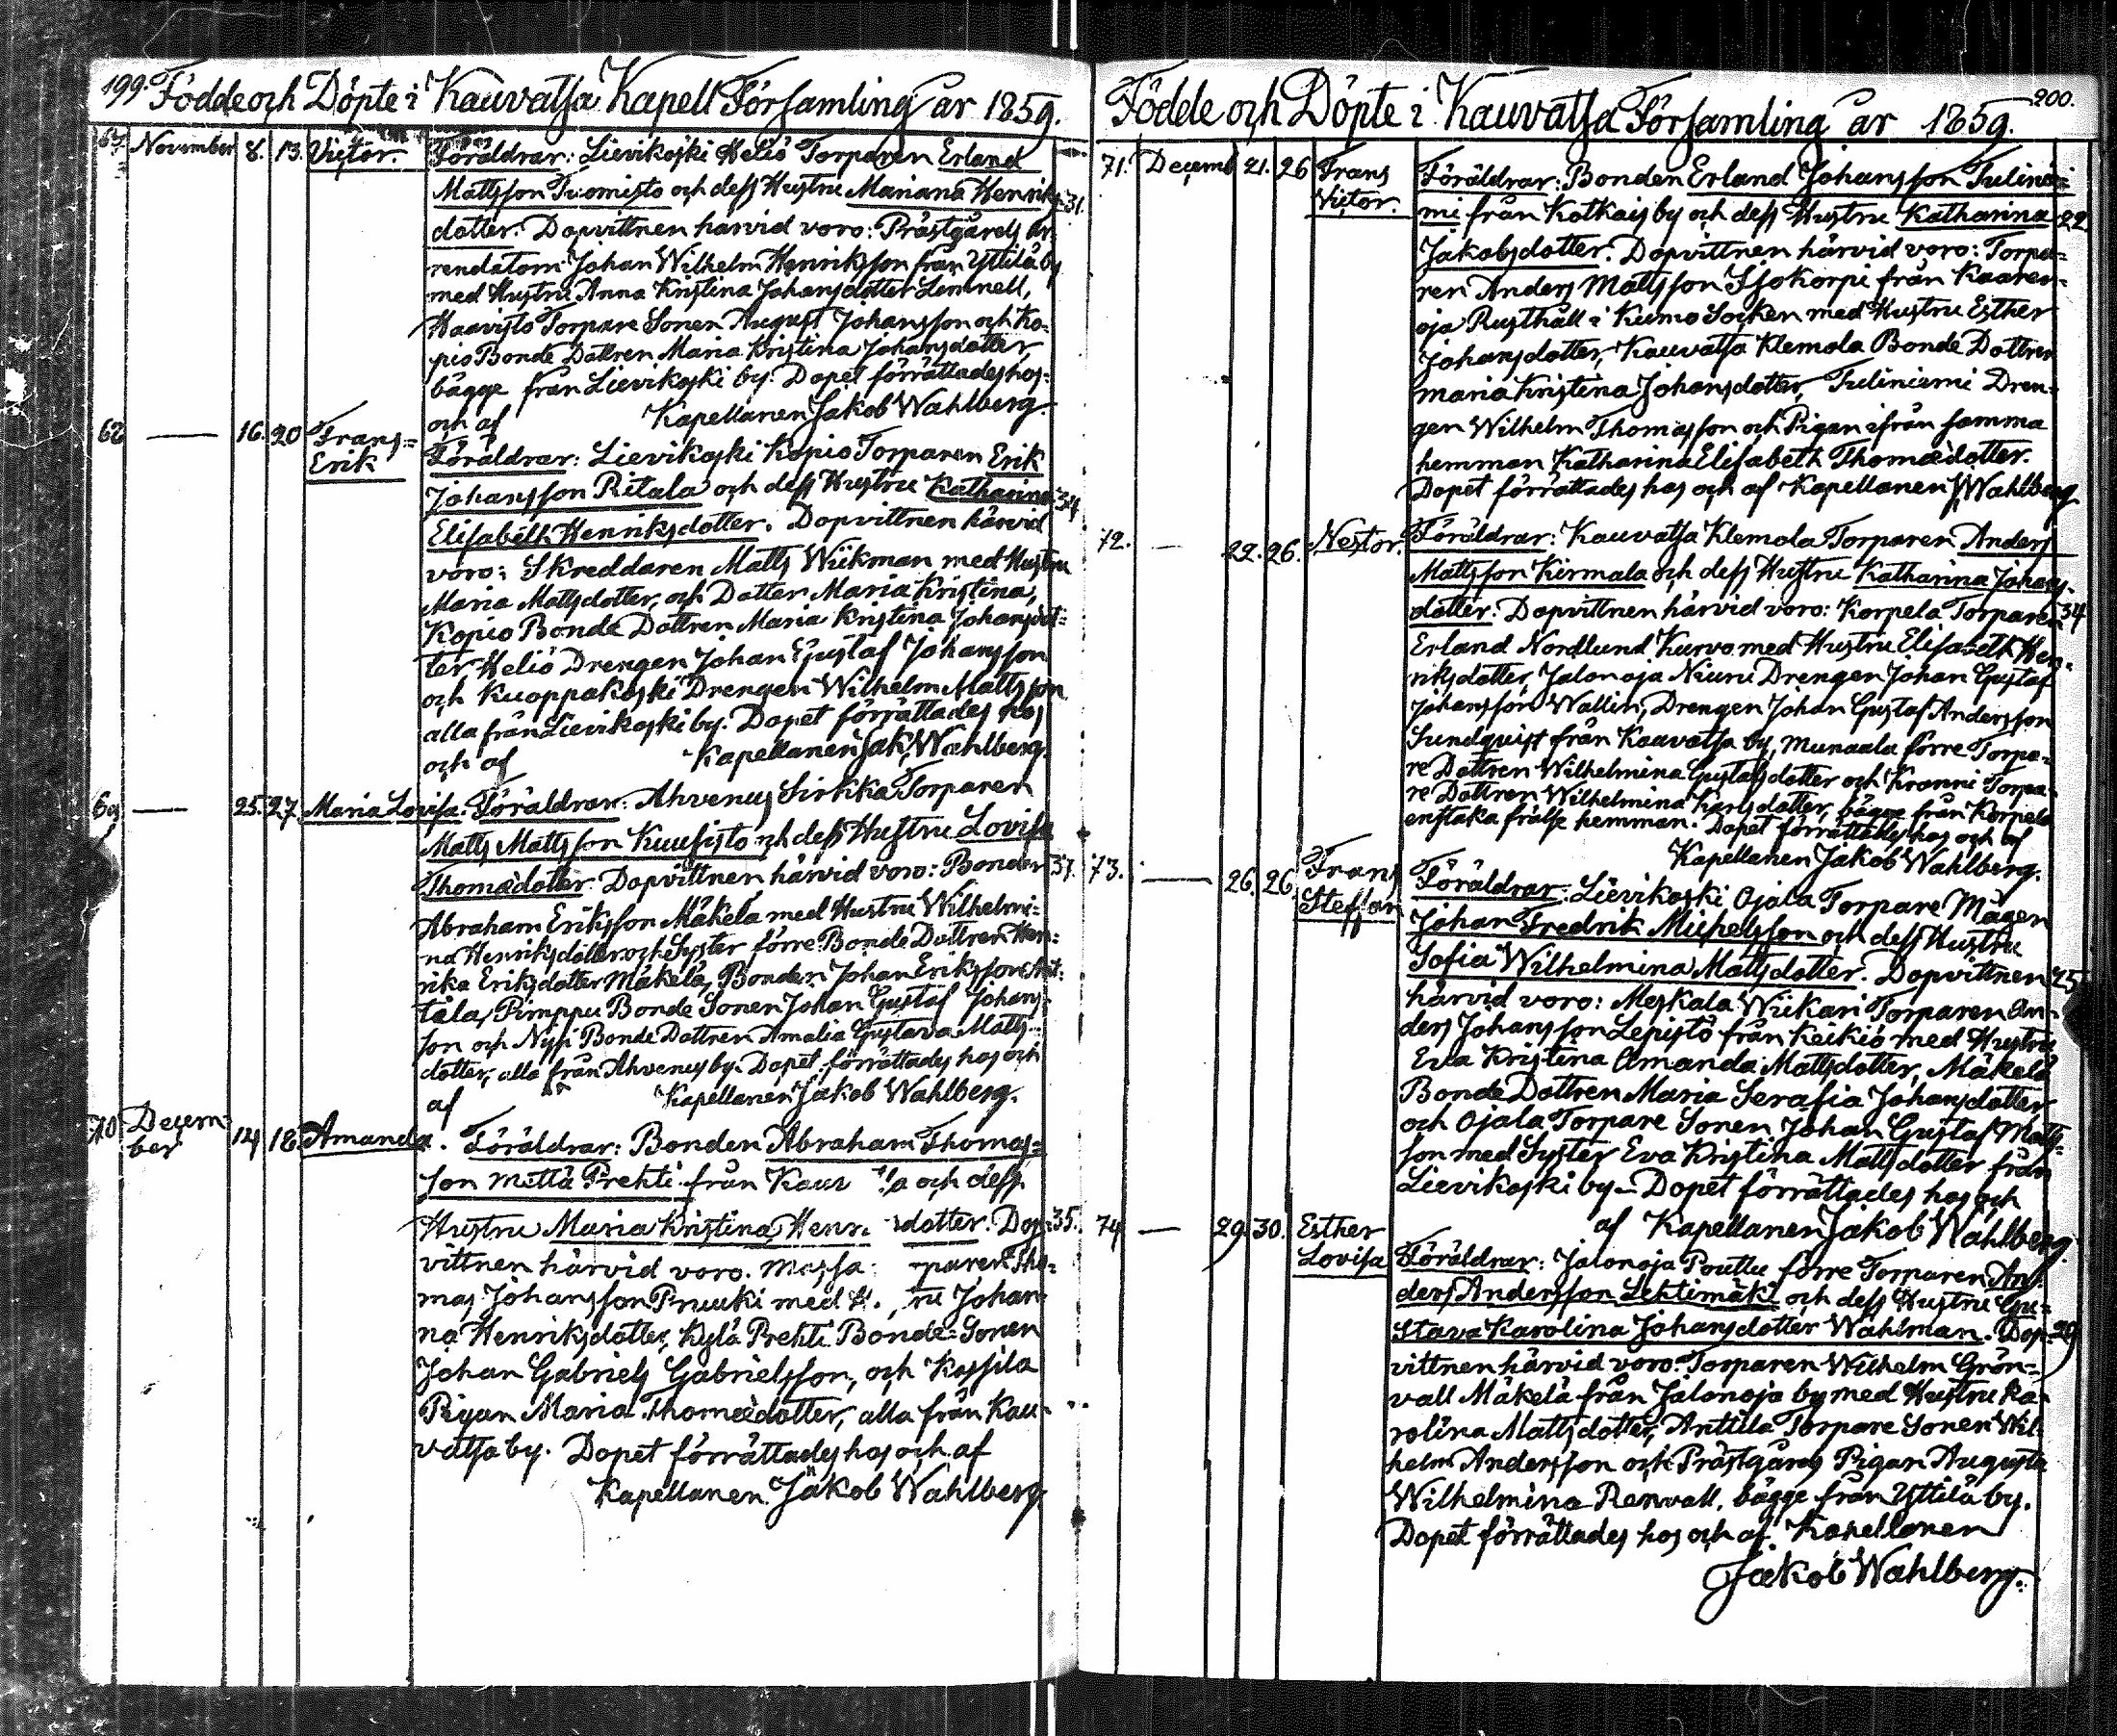 199.
Födde och Döpte i Kauvatsa Kapell Församling år 1859.
67. November 8. 13. Victor. Föräldrar: Lievikoski Heliö Torparen Erland
Mattsson Tuomisto och dess Hustru Mariana Henriks- 31.
dotter. Dopvittnen härvid voro: Prästgårds Ar-
rendatorn Johan Wilhelm Henriksson från Yttilä by
med Hustru Anna Kristina Johansdotter Lennell,
Haavisto Torpare Sonen August Johansson och Ko-
pio Bonde Dottren Maria Kristina Johansdotter,
bägge från Lievikoski by. Dopet förrättades hos
och af Kapellanen Jakob Wahlberg.
68 — 16. 20 Frans Föräldrar: Lievikoski Kopio Torparen Erik
Erik
Johansson Ritala och dess Hustru Katharina 34
Elisabeth Henriksdotter. Dopvittnen härvid
voro: Skreddaren Matts Wiikman med Hustru
Maria Mattsdotter, och Dotter Maria Kristina,
Kopio Bonde Dottren Maria Kristina Johansdot-
ter, Heliö Drengen Johan Gustaf Johansson
och Kuoppakoski Drengen Wilhelm Mattsson
alla från Lievikoski by. Dopet förrättades hos
och af Kapellanen Jak. Wahlberg.
69 — 25. 27. Maria Lovisa. Föräldrar: Ahvenus Sirkka Torparen
Matts Mattsson Kuusisto och dess Hustru Lovisa
Thomædotter. Dopvittnen härvid voro: Bonden 37.
Abraham Eriksson Mäkelä med Hustru Wilhelmi-
na Henriksdotter och Syster förre Bonde Dottren Hen-
rika Eriksdotter Mäkelä, Bonden Johan Eriksson Ant-
tila, Pimppu Bonde Sonen Johan Gustaf Johans-
son och Nysi Bonde Dottren Amalia Gustava Matts-
dotter, alla från Ahvenus by. Dopet förrättades hos och
af Kapellanen Jakob Wahlberg.
70 Decem- 14 18. Amanda. Föräldrar: Bonden Abraham Thomas-
ber
son Mettä Prehti från Kauv sa och dess
Hustru Maria Kristina Henri dotter. Dop- 35.
vittnen härvid voro. Massa paren Tho-
mas Johansson Pruuki med H. ru Johan-
na Henriksdotter, Kylä Prehti Bonde Sonen
Johan Gabriels Gabrielsson, och Kassila
Pigan Maria Thomædotter, alla från Kau-
vatsa by. Dopet förrättades hos och af
Kapellanen Jakob Wahlberg
200.
Födde och Döpte i Kauvatsa Församling år 1859.
71. Decemb 21. 26 Frans Föräldrar: Bonden Erland Johansson Tulinie-
Victor.
mi från Kotkais by och dess Hustru Katharina 22.
Jakobsdotter. Dopvittnen härvid voro: Torpa-
ren Anders Mattsson Isokorpi från Kaaren-
oja Rusthåll i Kumo Socken med Hustru Esther
Johansdotter, Kauvatsa Klemola Bonde Dottren
Maria Kristina Johansdotter, Tuliniemi Dren-
gen Wilhelm Thomasson och Pigan ifrån samma
hemman Katharina Elisabeth Thomædotter.
Dopet förrättades hos och af Kapellanen J. Wahlberg
72. — 22. 26. Nestor. Föräldrar: Kauvatsa Klemola Torparen Anders
Mattsson Kirmala och dess Hustru Katharina Johans-
dotter. Dopvittnen härvid voro: Korpela Torparen 34
Erland Nordlund Kurvo med Hustru Elisabeth Hen-
riksdotter, Jalonoja Niuni Drengen Johan Gustaf
Johansson Wallin, Drengen Johan Gustaf Andersson
Sundqvist från Kauvatsa by, Munaala förre Torpa-
re Dottren Wilhelmina Gustafsdotter och Kranni Torpa-
re Dottren Wilhelmina Karlsdotter, bägge från Korpela
enstaka frälse hemman. Dopet förrättades hos och af
Kapellanen Jakob Wahlberg.
73. — 26. 26. Frans Föräldrar: Lievikoski Ojala Torpare Mågen
Steffan
Johan Fredrik Michelsson och dess Hustru
Sofia Wilhelmina Mattsdotter. Dopvittnen 25
härvid voro: Meskala Wiikari Torparen An-
ders Johansson Lepistö från Keikiö med Hustru
Eva Kristina Amanda Mattsdotter, Mäkelä
Bonde Dottren Maria Serafia Johansdotter
och Ojala Torpare Sonen Johan Gustaf Matts-
son med Syster Eva Kristina Mattsdotter från
Lievikoski by. Dopet förrättades hos och
af Kapellanen Jakob Wahlberg.
74 — 29. 30. Esther
Lovisa Föräldrar: Jalonoja Pouttu förre Torparen An-
ders Andersson Lehtimäki och dess Hustru Gu-
stava Karolina Johansdotter Wahlman. Dop- 29
vittnen härvid voro: Torparen Wilhelm Grön-
vall Mäkelä från Jalonoja by med Hustru Ka-
rolina Mattsdotter, Anttila Torpare Sonen Wil-
helm Andersson och Prästgårds Pigan Augusta
Wilhelmina Renvall, bägge från Yttilä by.
Dopet förrättades hos och af Kapellanen
Jakob Wahlberg.